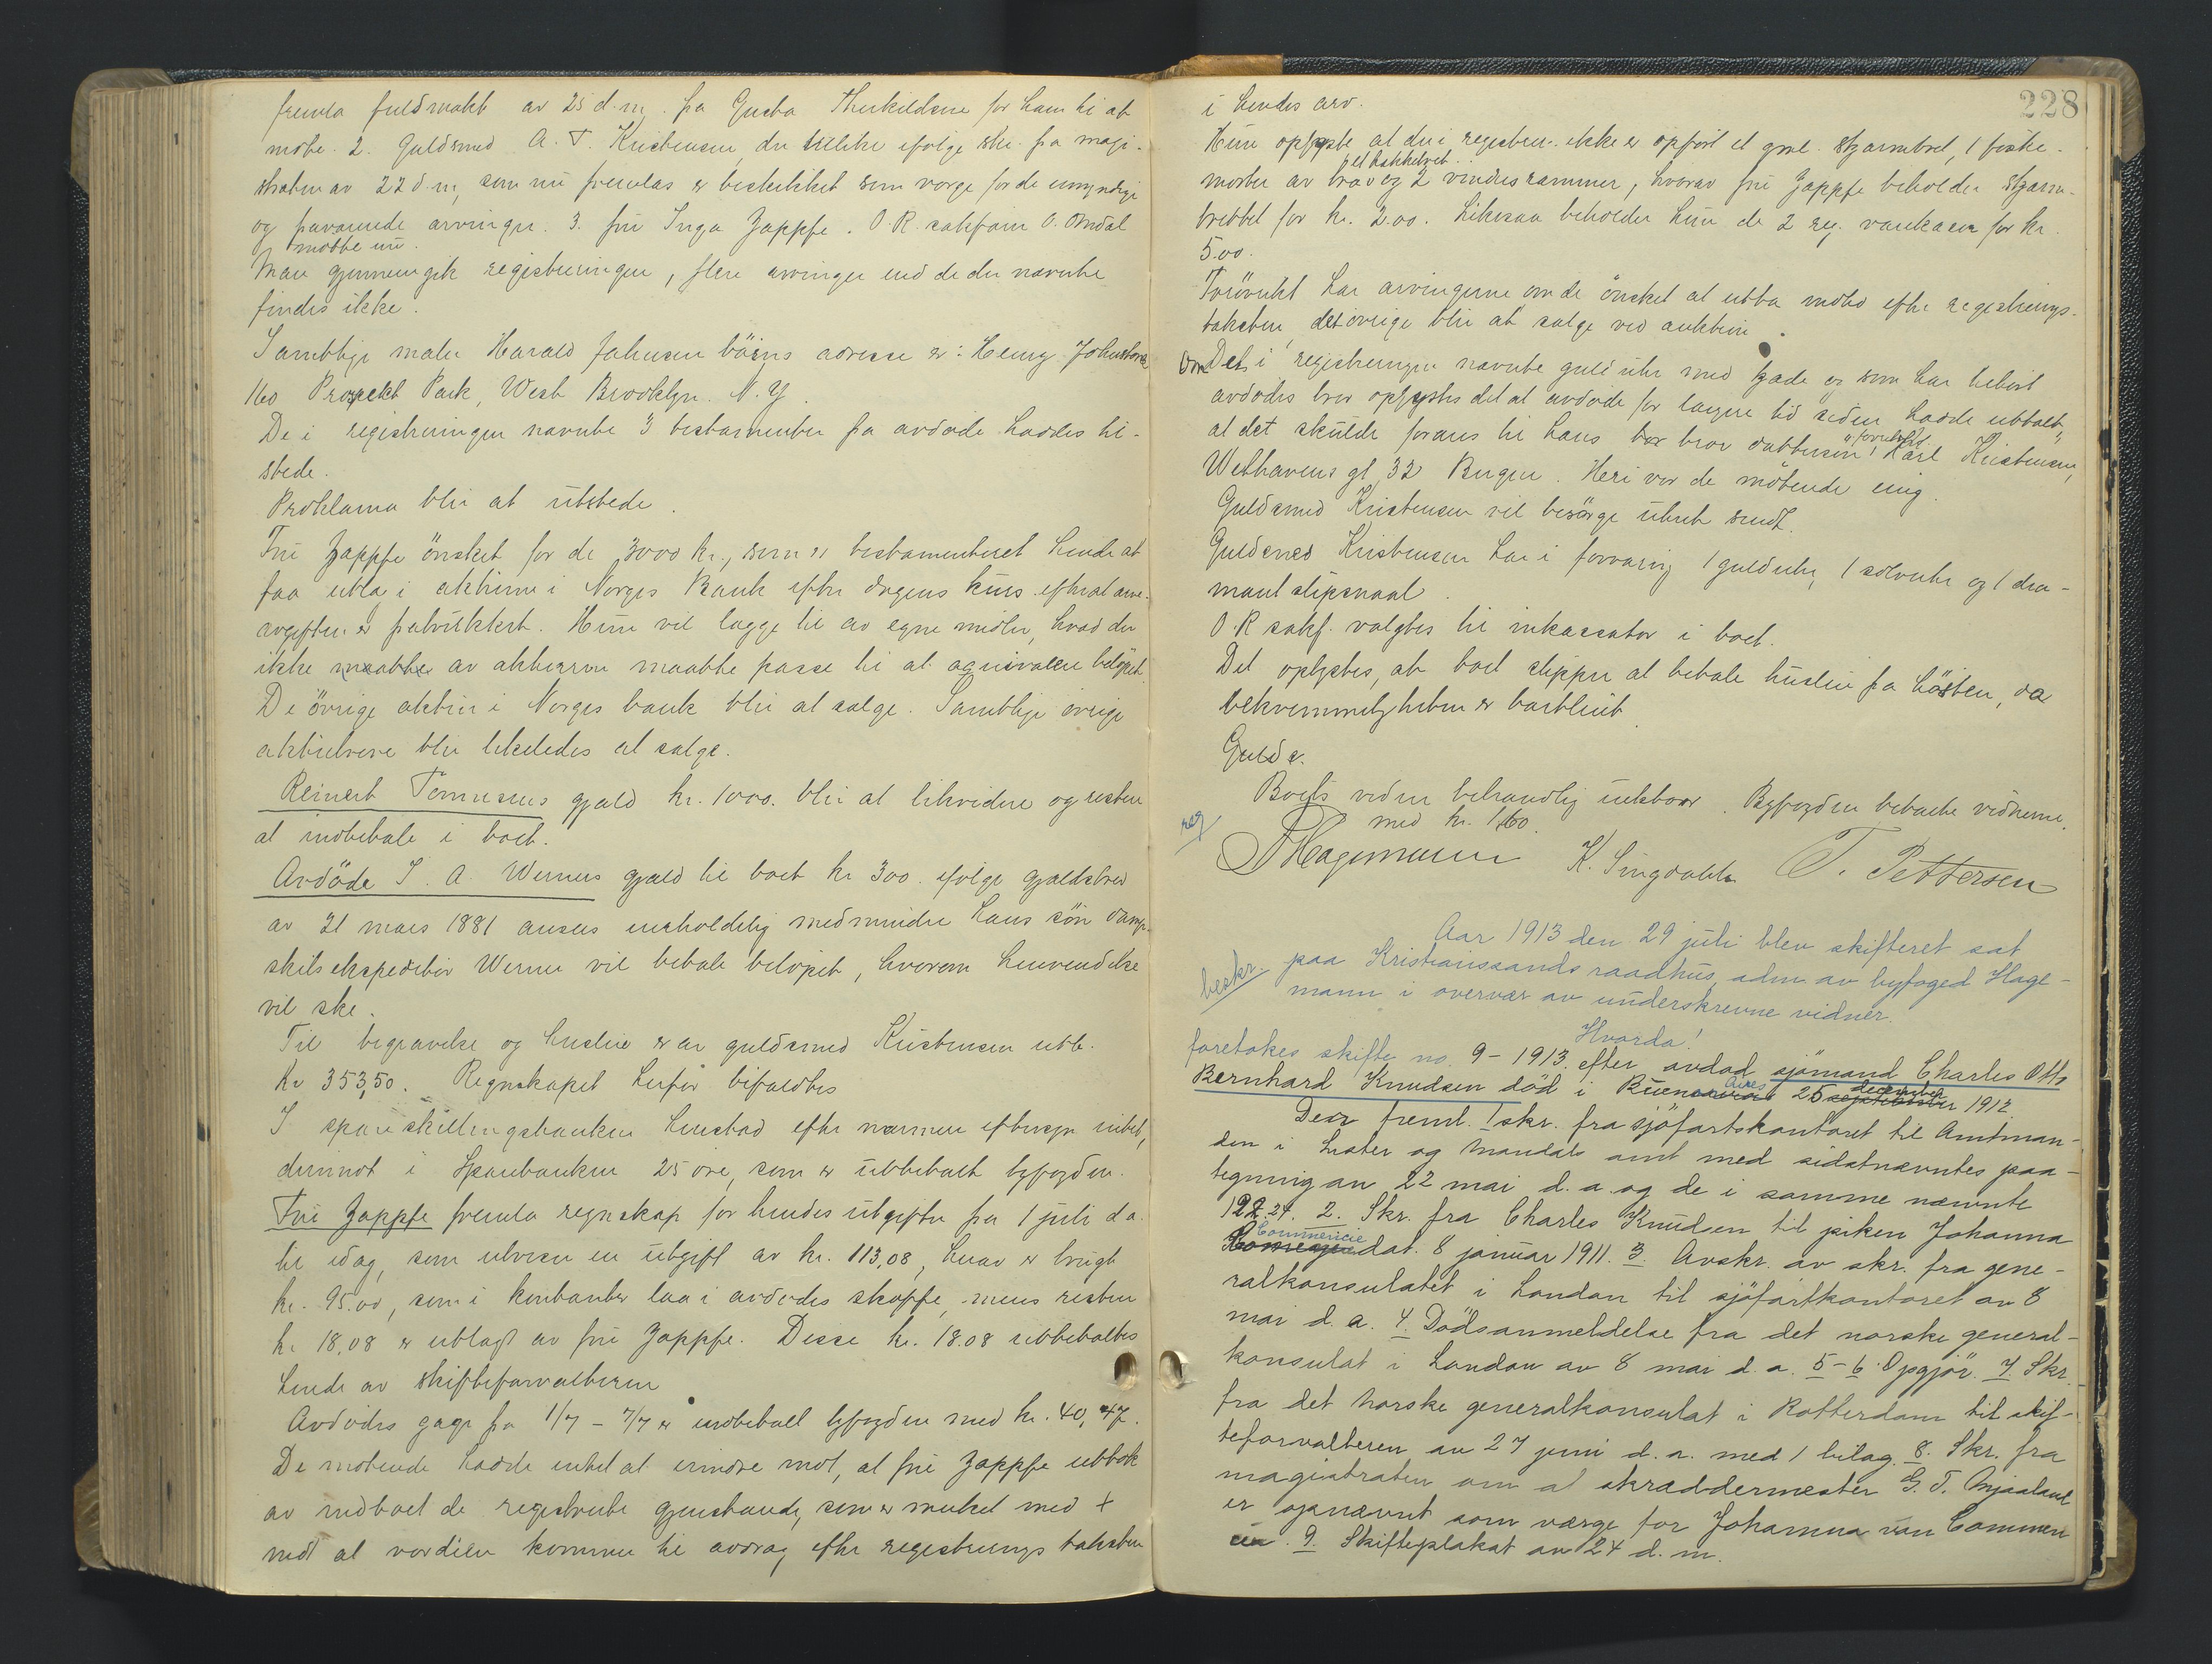 fremla fuldmakt av 25 d.m. fra Gusta Therkildsen for ham til at
møte. 2. Guldsmed A. T. Kristensen, der tillike ifølge skr. fra magi-
straten av 22 d.m, som nu fremlas er beskikket som verge for de umyndige
og fraværende arvinger. 3. fru Inga Zappfe. O.R. sakfører O. Omdal
møtte nu.
Man gjennemgik registreringen, flere arvinger end de der nævnte
findes ikke.
Samtlige maler Harald Johnsen börns adresse er: Henry Johnstone
160 Prospekt Park, West Brooklyn. N.Y.
De i registreringen nævnte 3 testamenter fra avdøde hadres til-
stede.
Proklama blir at utstede.
Fru Zappfe önsket for de 3000 kr., som er testamenteret hende at
faa utlagt aktierne i Norges Bank efter dagens kurs efterat arve-
avgiften er fratrukket. Hun vil lægge til av egne midler, hvad der
ikke maatte av aktierne maatte passe til at aquivalere beløpet.
De övrige aktier i Norges bank blir at sælge. Samtlige øvrige
aktiebreve blir likeledes at sælge.
Reinert Tönnesens gjæld kr. 1000. blir at likvidere og resten
at indbetale i boet.
Avdöde J. A. Werners gjæld til boet kr 300. ifölge gjældsbrev
av 21 mars 1881 ansees uerholdelig medmindre hans sön damp-
skibsekspeditör Werner vil betale beløpet, hvorom henvendelse
vil ske.
Til begravelse og husleie er av guldsmed Kristensen utb.
Kr 353,50. Regnskapet herfor bifaldtes
I spareskillingsbanken henstod efter nærmere eftersyn intet,
derimot i Sparebanken 25 öre, som er utbetalt byfogden.
Fru Zappfe fremla regnskap for hendes utgifter fra 1 juli d.a.
til idag, som utviser en utgift av kr. 113,08, herav er brugt
kr. 95.00, som i kontanter laa i avdødes skuffe, mens resten
kr 18,08 er utlagt av fru Zappfe. Disse kr. 18.08 utbetaltes
hende av skifteforvalteren
Avdödes gage fra 1/7 – 7/7 er indbetalt byfogden med kr. 40,47.
De møtende hadde intet at erindre mot, at fru Zappfe uttok
av indboet de registrerte gjenstande, som er merket med +
mot at værdien kommer til avdrag efter registrerings taksten
228
i hendes arv.
Hun oplyste at der i registreren. ikke er opfört et gml. skjærebret, 1 fiske-
1 et hakkebret.
morter av træ og 2 vindusrammer, hvorav fru Zappfe beholder skjære-
brettet for kr. 2.00. Likesaa beholder hun de 2 reg. for kr.
5.00.
Forövrikt har arvingerne om de önsket at utta indbo efter registrerings-
taksten, det övrige blir at sælge ved auktion
Om Det i registreringen nævnte guld uhr med kjæde og som har tilhört
avdødes bror oplystes det at avdöde for længere tid siden hadde uttalt,
at det skulde foræres til hans bror dattersön, Karl Kristensen,
Welhavens gt, 32 Bergen. Heri var de mötende enig.
Guldsmed Kristensen vil besörge uhret sendt.
Guldsmed Kristensen har i forvaring 1 gulduhr, 1 sølvuhr og 1 dia-
mant slipsnaal.
O.R sakf. valgtes til inkassator i boet.
Det oplystes, at boet slipper at betale husleie fra hösten, da
bekvemmeligheten er bortleiet
Gulds.
Boets videre behandlig utstaar. Byfogden betalte vidnerne
med kr. 1,60.
reg
Hagemann K. Singdahlsen T. Pettersen
Aar 1913 den 29 juli blev skifteret sat
beskr. paa Kristianssands raadhus, adm av byfoged Hage-
mann i overvær av underskrevne vidner.
Hvorda!
foretokes skifte no. 9 – 1913. efter avdød sjömand Charles Otto
Bernhard Knudsen död i Buenos Aires 25 december 1912.
Der freml. 1 skr. fra sjöfartskontoret til Amtman-
den i Lister og Mandals amt med sidstnævntes paa-
tegning av 22 mai d.a. og de i samme nævnte
2. Skr. fra Charles Knudsen til piken Johanna
Commencie dat. 8 januar 1911. 3. Avskr. av skr. fra gene-
ralkonsulatet i London til sjöfartkontoret av 8
mai d.a. 4. Dödsanmeldelse fra det norske general-
konsulat i London av 8 mai d.a. 5-6 Opgjör. 7. Skr.
fra det norske generalkonsulat i Rotterdam til skif-
teforvalteren av 27 juni d.a. med 1 bilag. 8. Skr. fra
magistraten om at skræddermester G. T. Mjaaland
er opnævnt som værge for Johanna van Commen
9. Skifteplakat av 24 d.m.